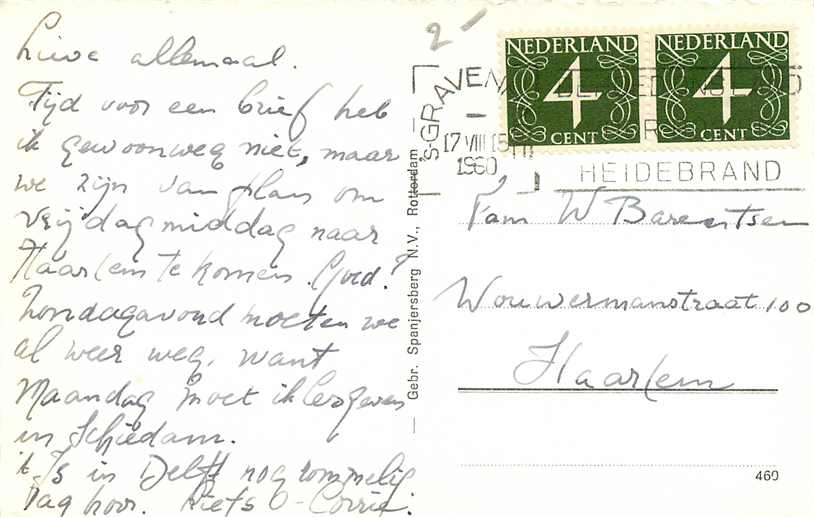 Lieve allemaal.
Tijd voor een brief heb
ik gewoonweg niet, maar
we zijn van plan om
vrijdagmiddag naar
Haarlem te komen. Goed?
Zondagavond moeten we
al weer weg, want
Maandag moet ik lesgeven
in Schiedam.
't Is in Delft nog rommelig
Dag hoor. Corrie.
Gebr. Spanjersberg N.V., Rotterdam
2-
NEDERLAND NEDERLAND
4 4
CENT CENT
's-GRAVEN
17 VIII
1960
HEIDEBRAND
Fam W Barentsen
Wouwermanstraat 100
Haarlem
460